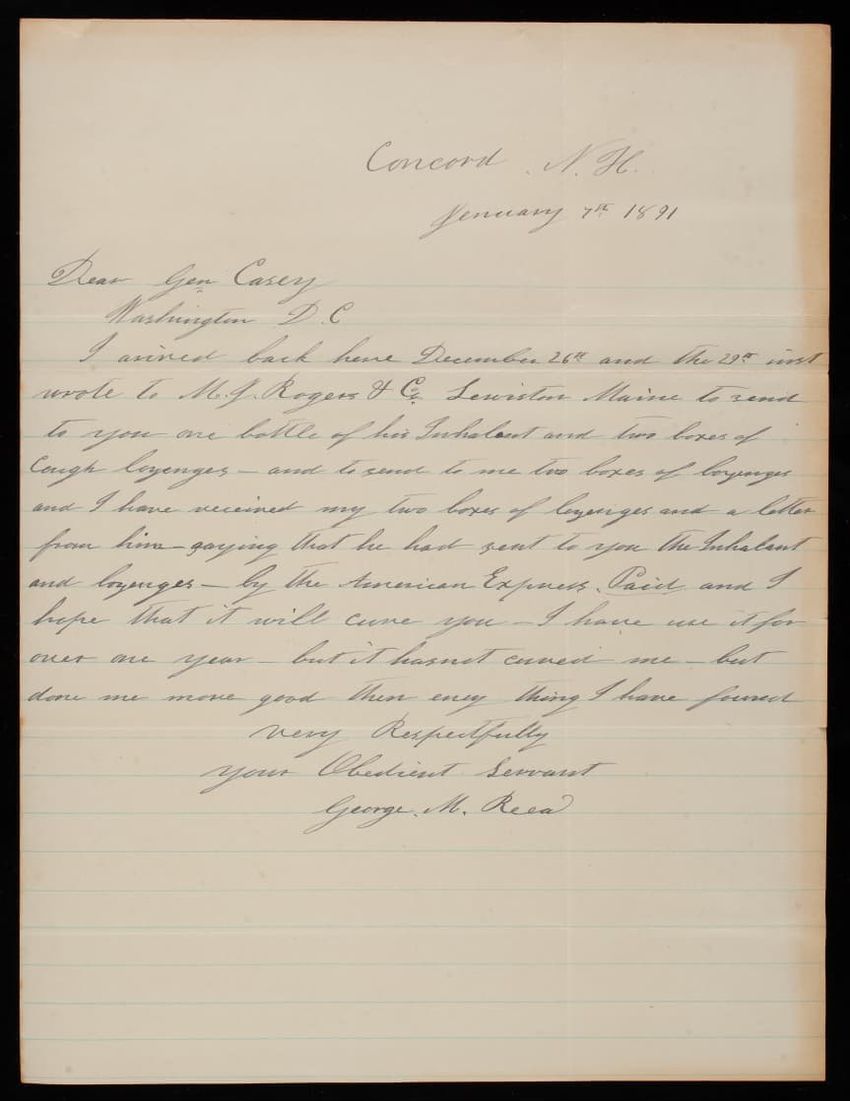 Concord. N. H.
Jenuary 7th 1891
Dear Gen Casey
Washington D. C
I arived back here December 26th and the 29th inst
wrote to M. J. Rogers & Co. Lewiston Maine to send
to you one bottle of his Inhalent and two boxes of
Cough lozenges — and to send to me two boxes of lozenges
and I have received my two boxes of lozenges and a letter
from him — saying that he had sent to you the Inhalant
and lozenges — by the American Express. Paid and I
hope that it will cure you — I have use it for
over one year — but it hasnot cured me — but
done me more good then eney thing I have found
very Respectfully
your Obedient Servant
George. M. Reed